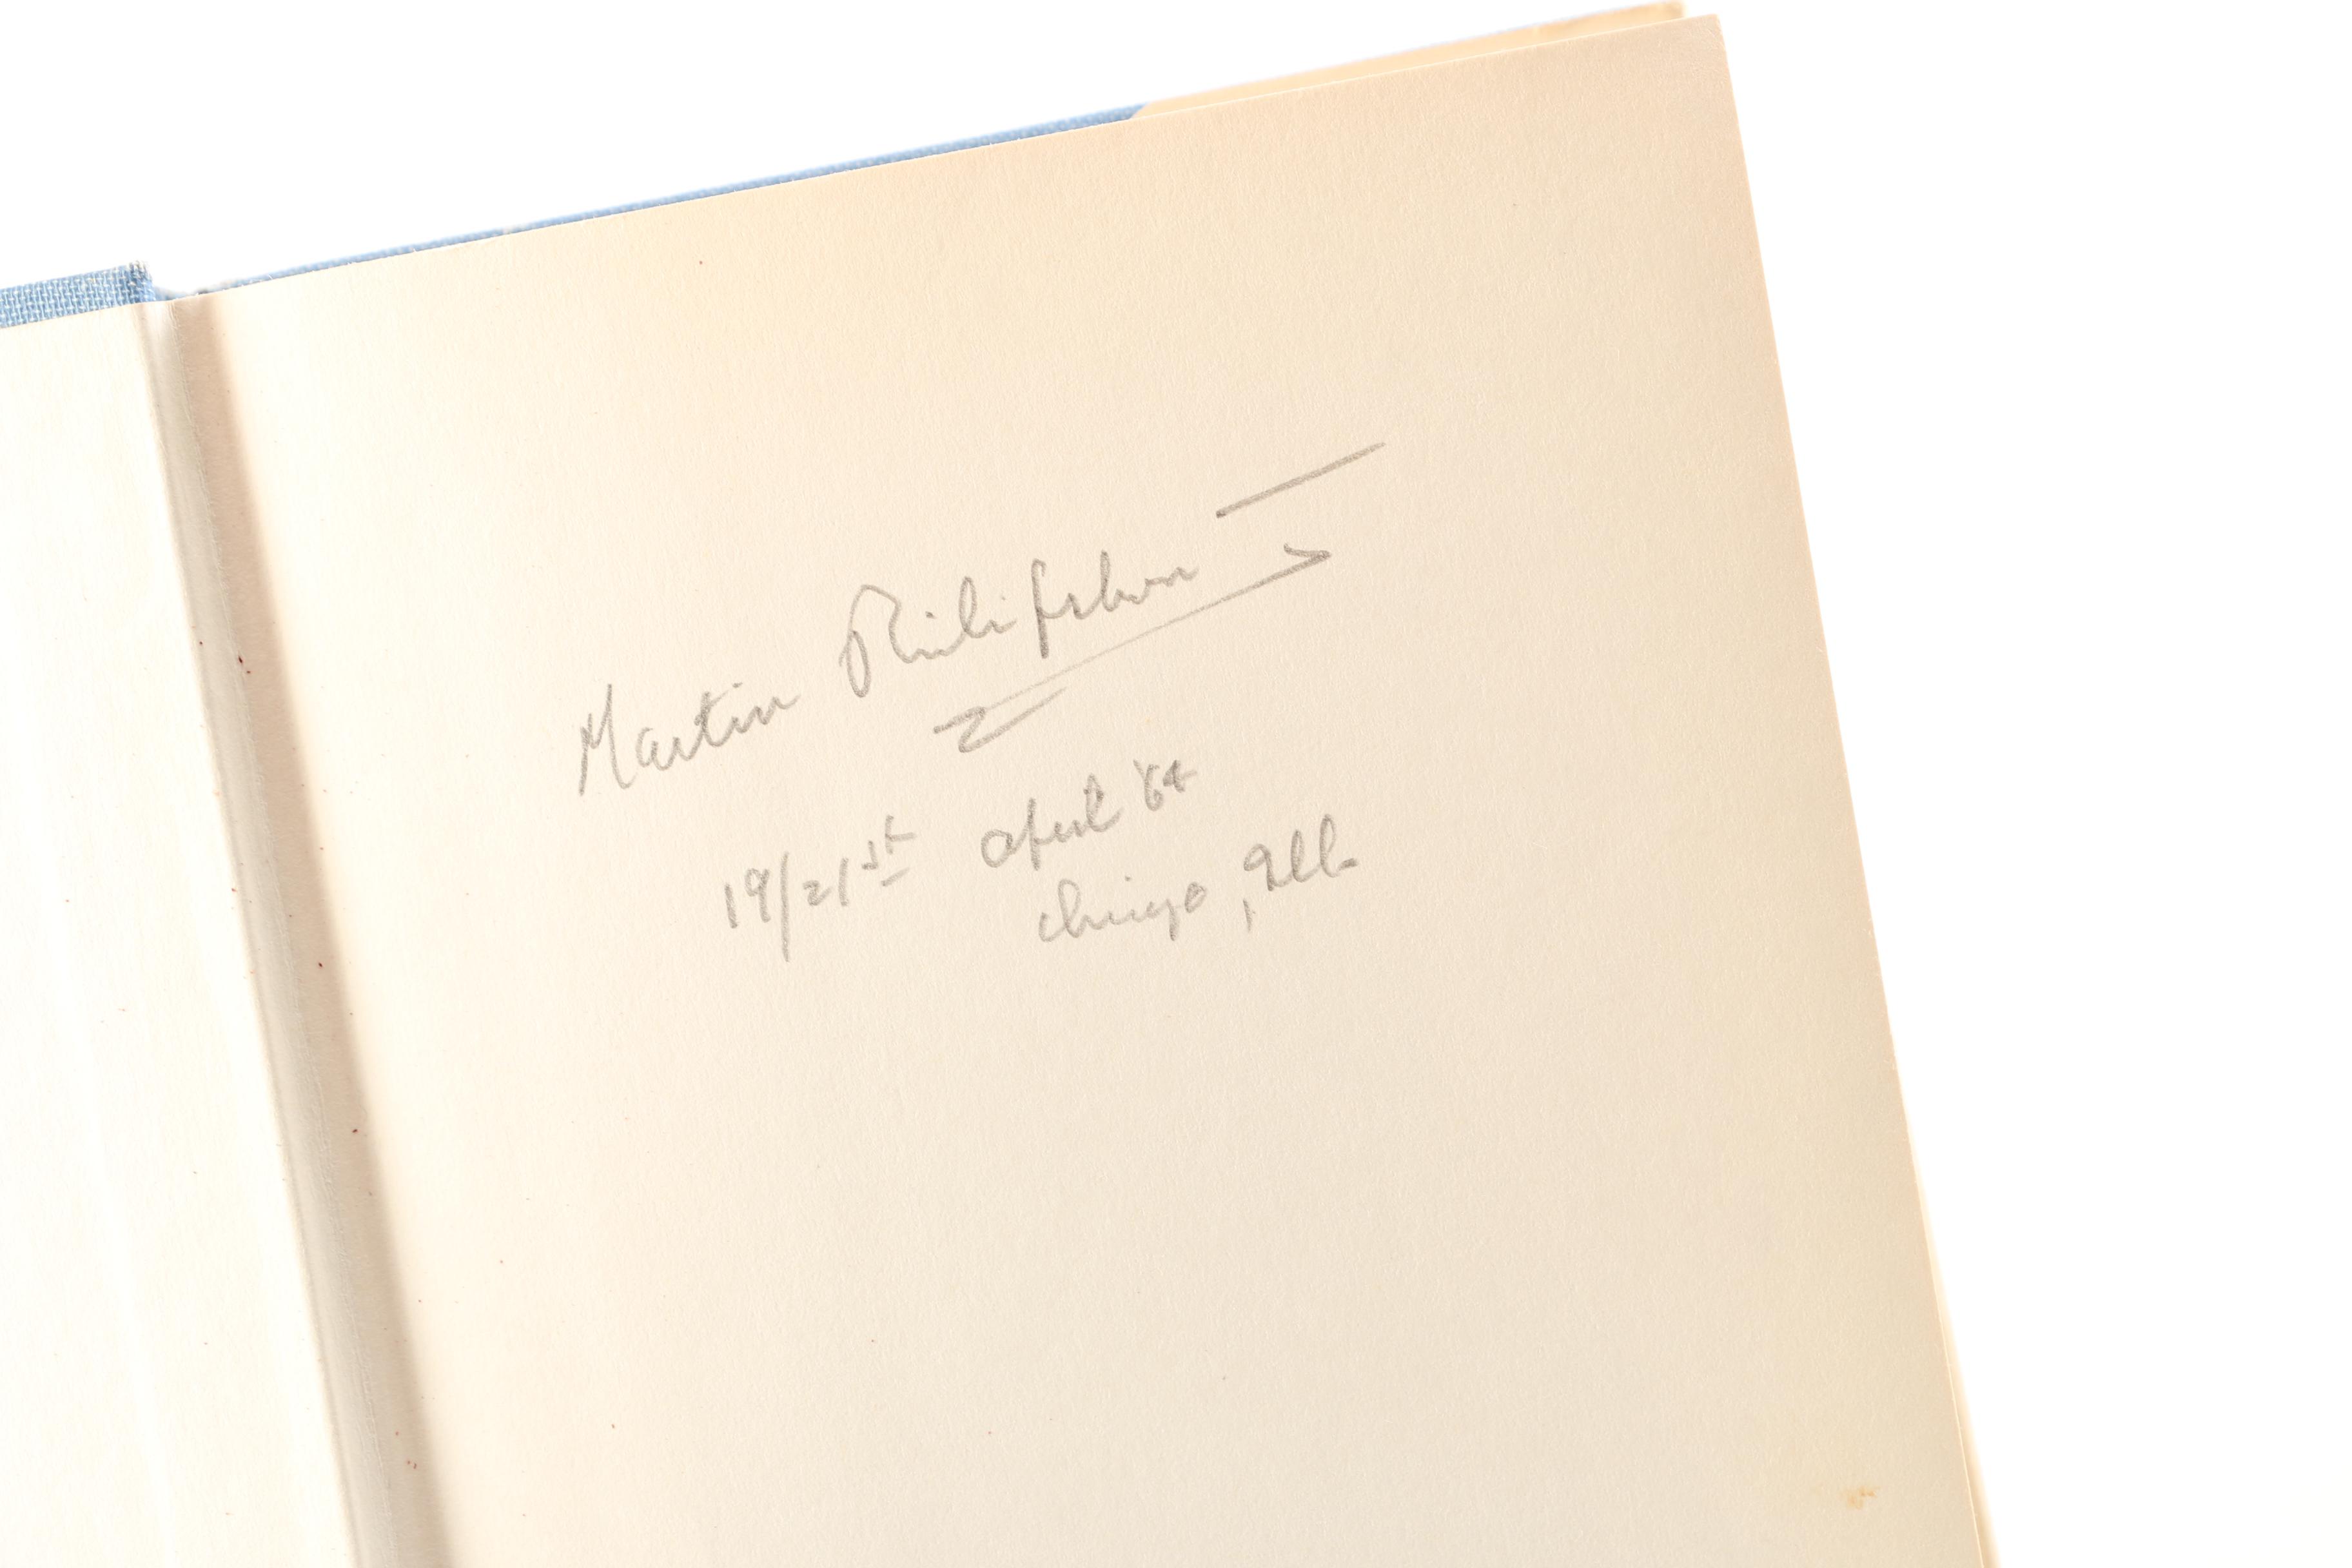 Martin
19/21st April '64
Chicago, Ill.